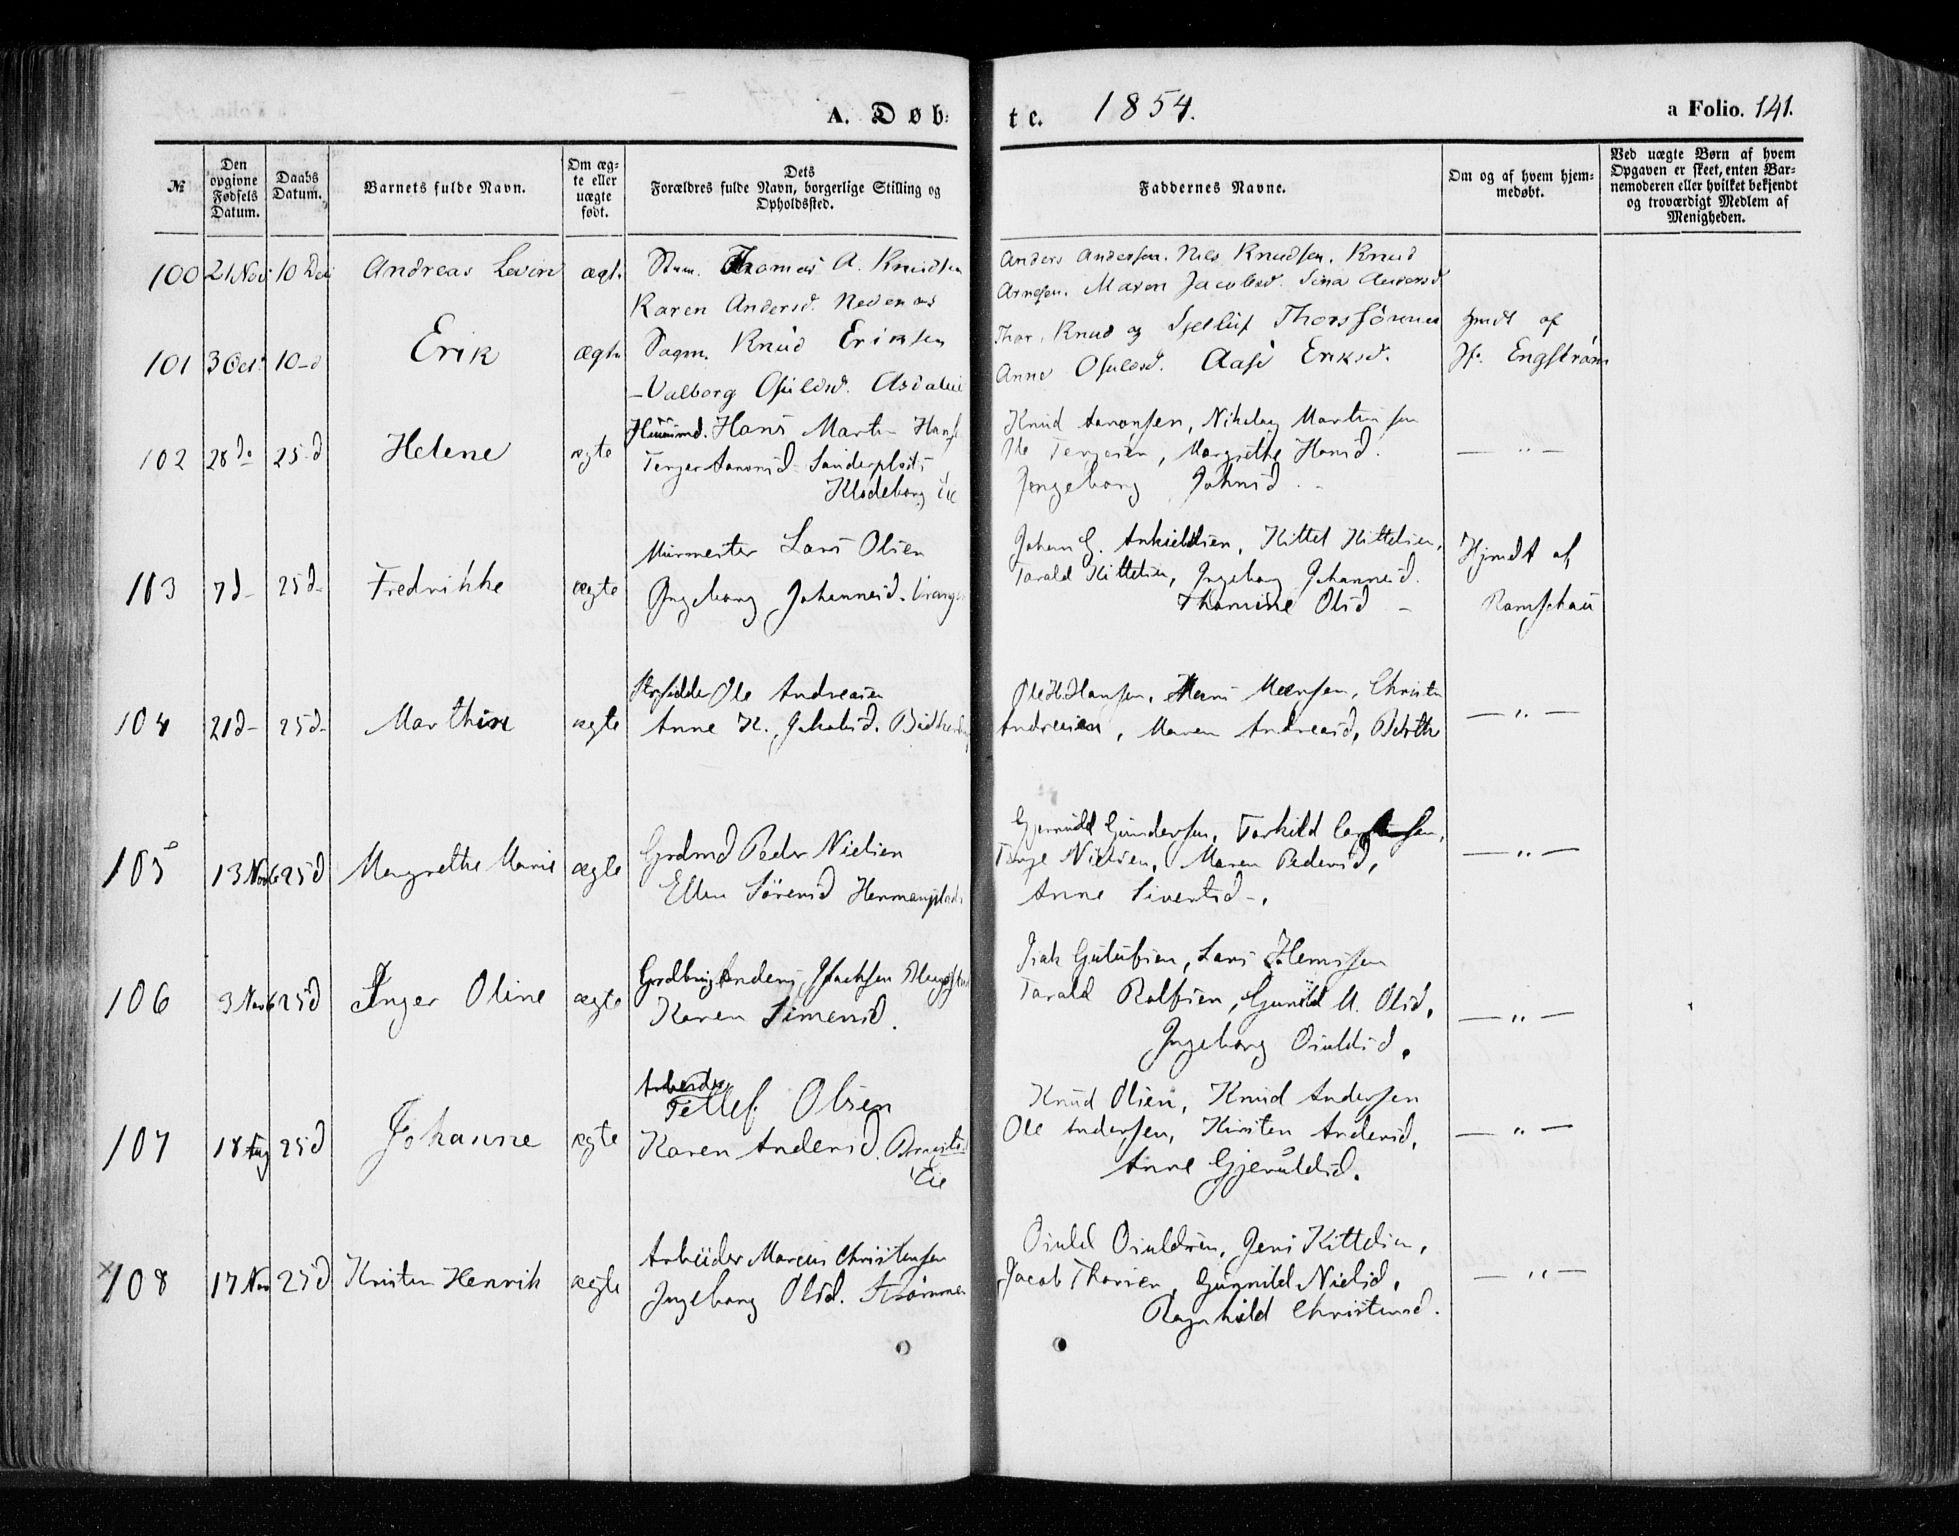 A. Døb:
te. 1854. a Folio. 141.
№
Den opgivne Fødsels Datum.
Daabs Datum.
Barnets fulde Navn.
Om ægte eller uægte født.
Dets Forældres fulde Navn, borgerlige Stilling og Opholdssted.
Faddernes Navne.
Om og af hvem hjemmedøbt.
Ved uægte Børn af hvem Opgaven er skeet, enten Barnemoderen eller hvilket bekjendt og troværdigt Medlem af Menigheden.
100 21 Nov 10 Andreas Levin ægt. Thomas A. Knudsen
Karen Andersd. Nedenes
Anders Andersen. Nils Knudsen. Knud
Arnesen. Maren Jacobsd. Sina Andersd
101 3 Oct 10 d Erik ægte Sagm. Knud Eriksen
Valborg Osuldsd.
Thor, Knud og
Anne Osuldsd. Aase Eriksd.
af
Engstrøm
102 28 do 25 d Helene ægte Huusmd. Hans Martin Hans
Terjer Aanonsd
Klodeborg Eie
Knud Aaronsen, Nikolay Martinsen
Ole Terjesen, Margrethe Hansd.
Ingeborg Johnsd.
— " —
103 7 d 25 d Fredrikke ægte Murmester Lars Olsen
Ingeborg Johannesd.
Johan G. Kittel Kittelsen,
Tarald Kittelsen, Ingeborg Johannesd.
Thomine Olsd
Hjmdt af
Ramschau
104 21 d 25 d Marthin ægte Ole Andreasen
Anne K. Jakobsd.
Ole H. Hansen, Christen
Andreasen, Maren Andreasd, Birthe
— " —
105 13 Novb 25 d Margrethe Marie ægte Grdmd Peder Nielsen
Ellen Sørensd
Gjeruld Gundersen, Torkild
Terje Nielsen, Maren Pedersd,
Anne Sivertsd.
— " —
106 3 Novb 25 d Inger Oline ægte Anders Isachsen
Karen Simensd.
Isak Gutulfsen, Lars Hemissen
Tarald Rolfsen, Gunild M. Olsd.
Ingeborg Osuldsd.
— " —
107 18 Aug 25 d Johanne ægte Arbeider
Tellef Olsen
Karen Andersd.
Eie
Knud Olsen, Knud Andersen
Ole Andersen, Kirsten Andersd,
Anne Gjeruldsd.
— " —
× 108 17 Nov 25 d Kristen Henrik ægte Arbeider Marcus Christensen
Ingeborg Olsd. Strømmen
Osuld Osuldsen, Jens Kittelsen,
Jacob Thorsen, Gunnild Nielsd.
Ragnhild Christensd.
— " —